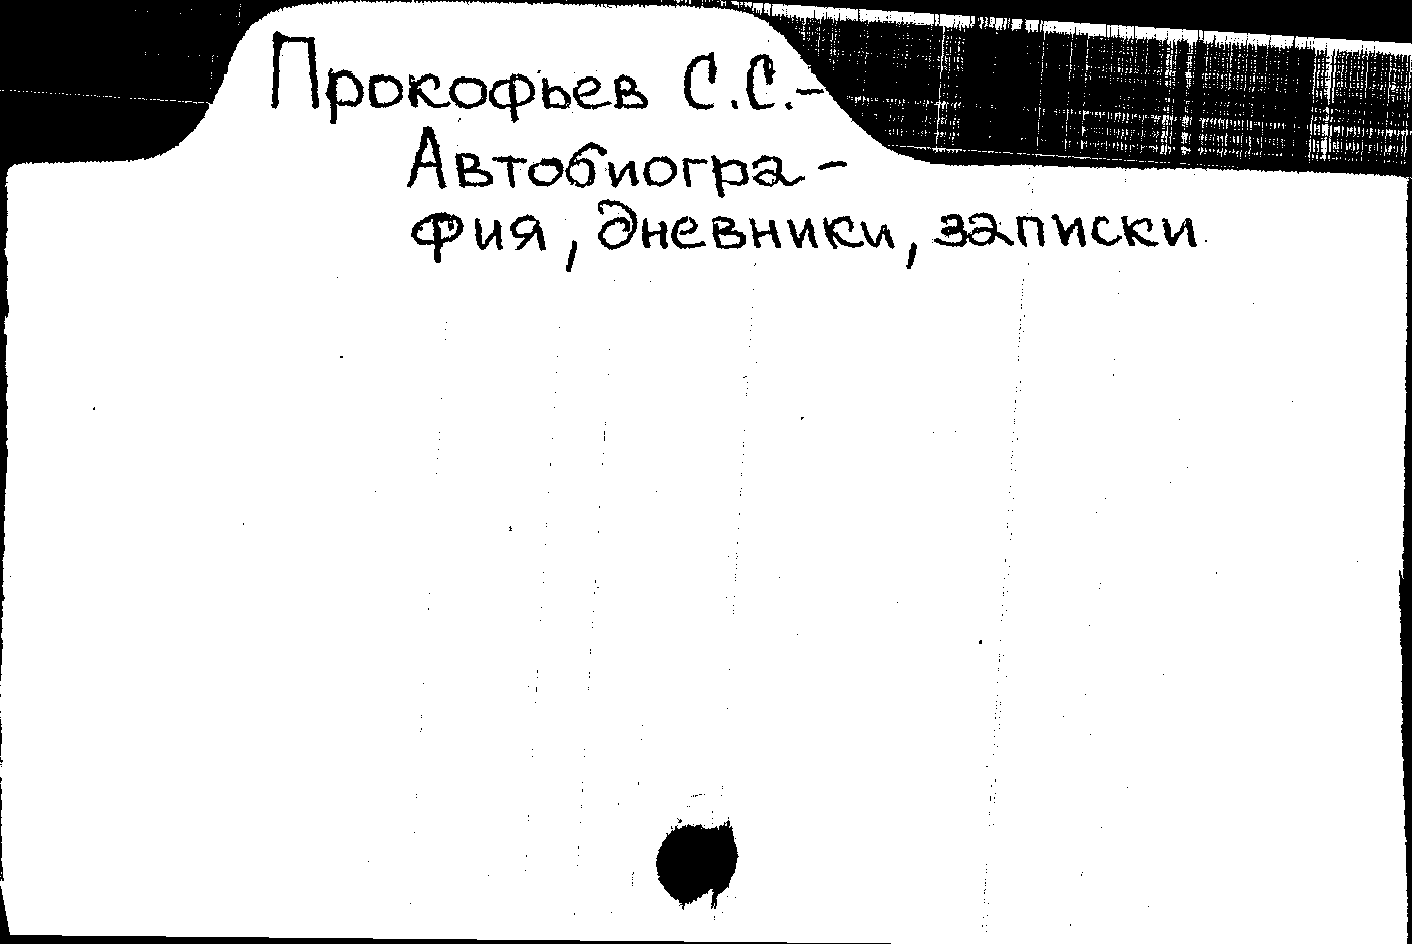 Прокофьев С.С.-
Автобиогра-
фия, дневники, записки